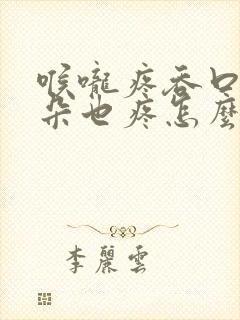 喉嚨疼吞口
朵也疼怎麼
李麗雲